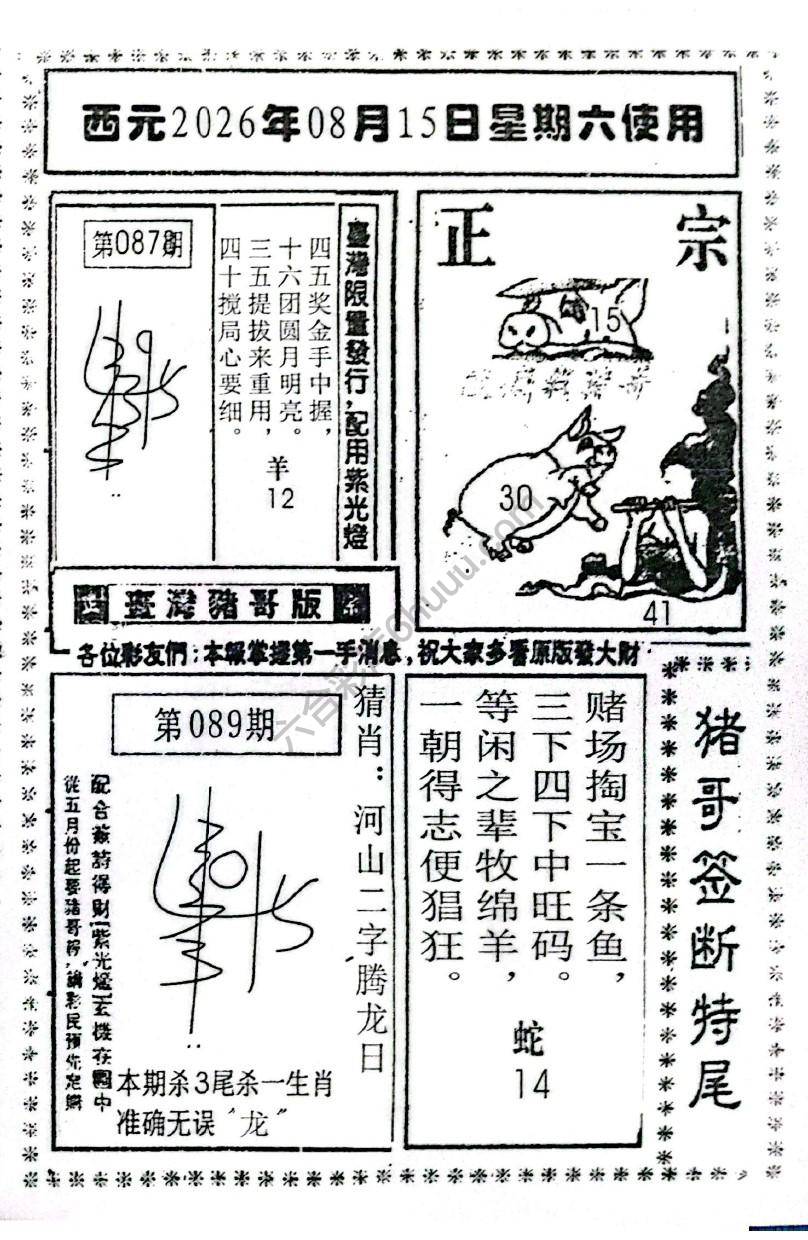 西元2026年08月15日星期六使用
第087期
臺灣限量發行，配用紫光燈
四五奖金手中握，
十六团圆月明亮。
三五提拔来重用，
四十搅局心要细。
羊
12
正宗
15
30
41
臺灣豬哥版
各位彩友們：本報掌握第一手消息，祝大家多看原版發大財
第089期
猜肖：河山二字腾龙日
配合簽詩得財紫光燈玄機在圖中
從五月份起要豬哥報，請彩民預先定購
本期杀3尾杀一生肖
准确无误“龙”
赌场掏宝一条鱼，
三下四下中旺码。
等闲之辈牧绵羊，
一朝得志便猖狂。
蛇
14
猪哥签断特尾